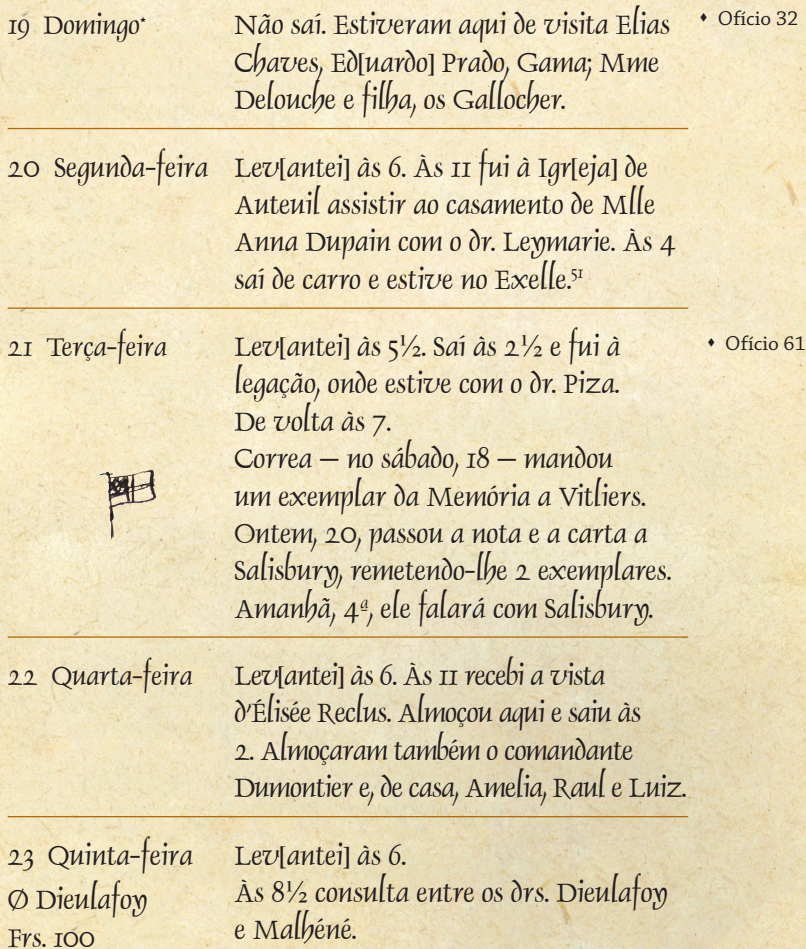 19 Domingo* Não saí. Estiveram aqui de visita Elias
Chaves, Ed[uardo] Prado, Gama; Mme
Delouche e filha, os Gallocher.
♦ Ofício 32
20 Segunda-feira Lev[antei] às 6. Às 11 fui à Igr[eja] de
Auteuil assistir ao casamento de Mlle
Anna Dupain com o dr. Leymarie. Às 4
saí de carro e estive no Exelle.⁵¹
21 Terça-feira Lev[antei] às 5½. Saí às 2½ e fui à
legação, onde estive com o dr. Piza.
De volta às 7.
Correa — no sábado, 18 — mandou
um exemplar da Memória a Vitliers.
Ontem, 20, passou a nota e a carta a
Salisbury, remetendo-lhe 2 exemplares.
Amanhã, 4ª, ele falará com Salisbury.
♦ Ofício 61
22 Quarta-feira Lev[antei] às 6. Às 11 recebi a vista
d'Élisée Reclus. Almoçou aqui e saiu às
2. Almoçaram também o comandante
Dumontier e, de casa, Amelia, Raul e Luiz.
23 Quinta-feira Lev[antei] às 6.
Ø Dieulafoy Às 8½ consulta entre os drs. Dieulafoy
Frs. 100 e Malhéné.